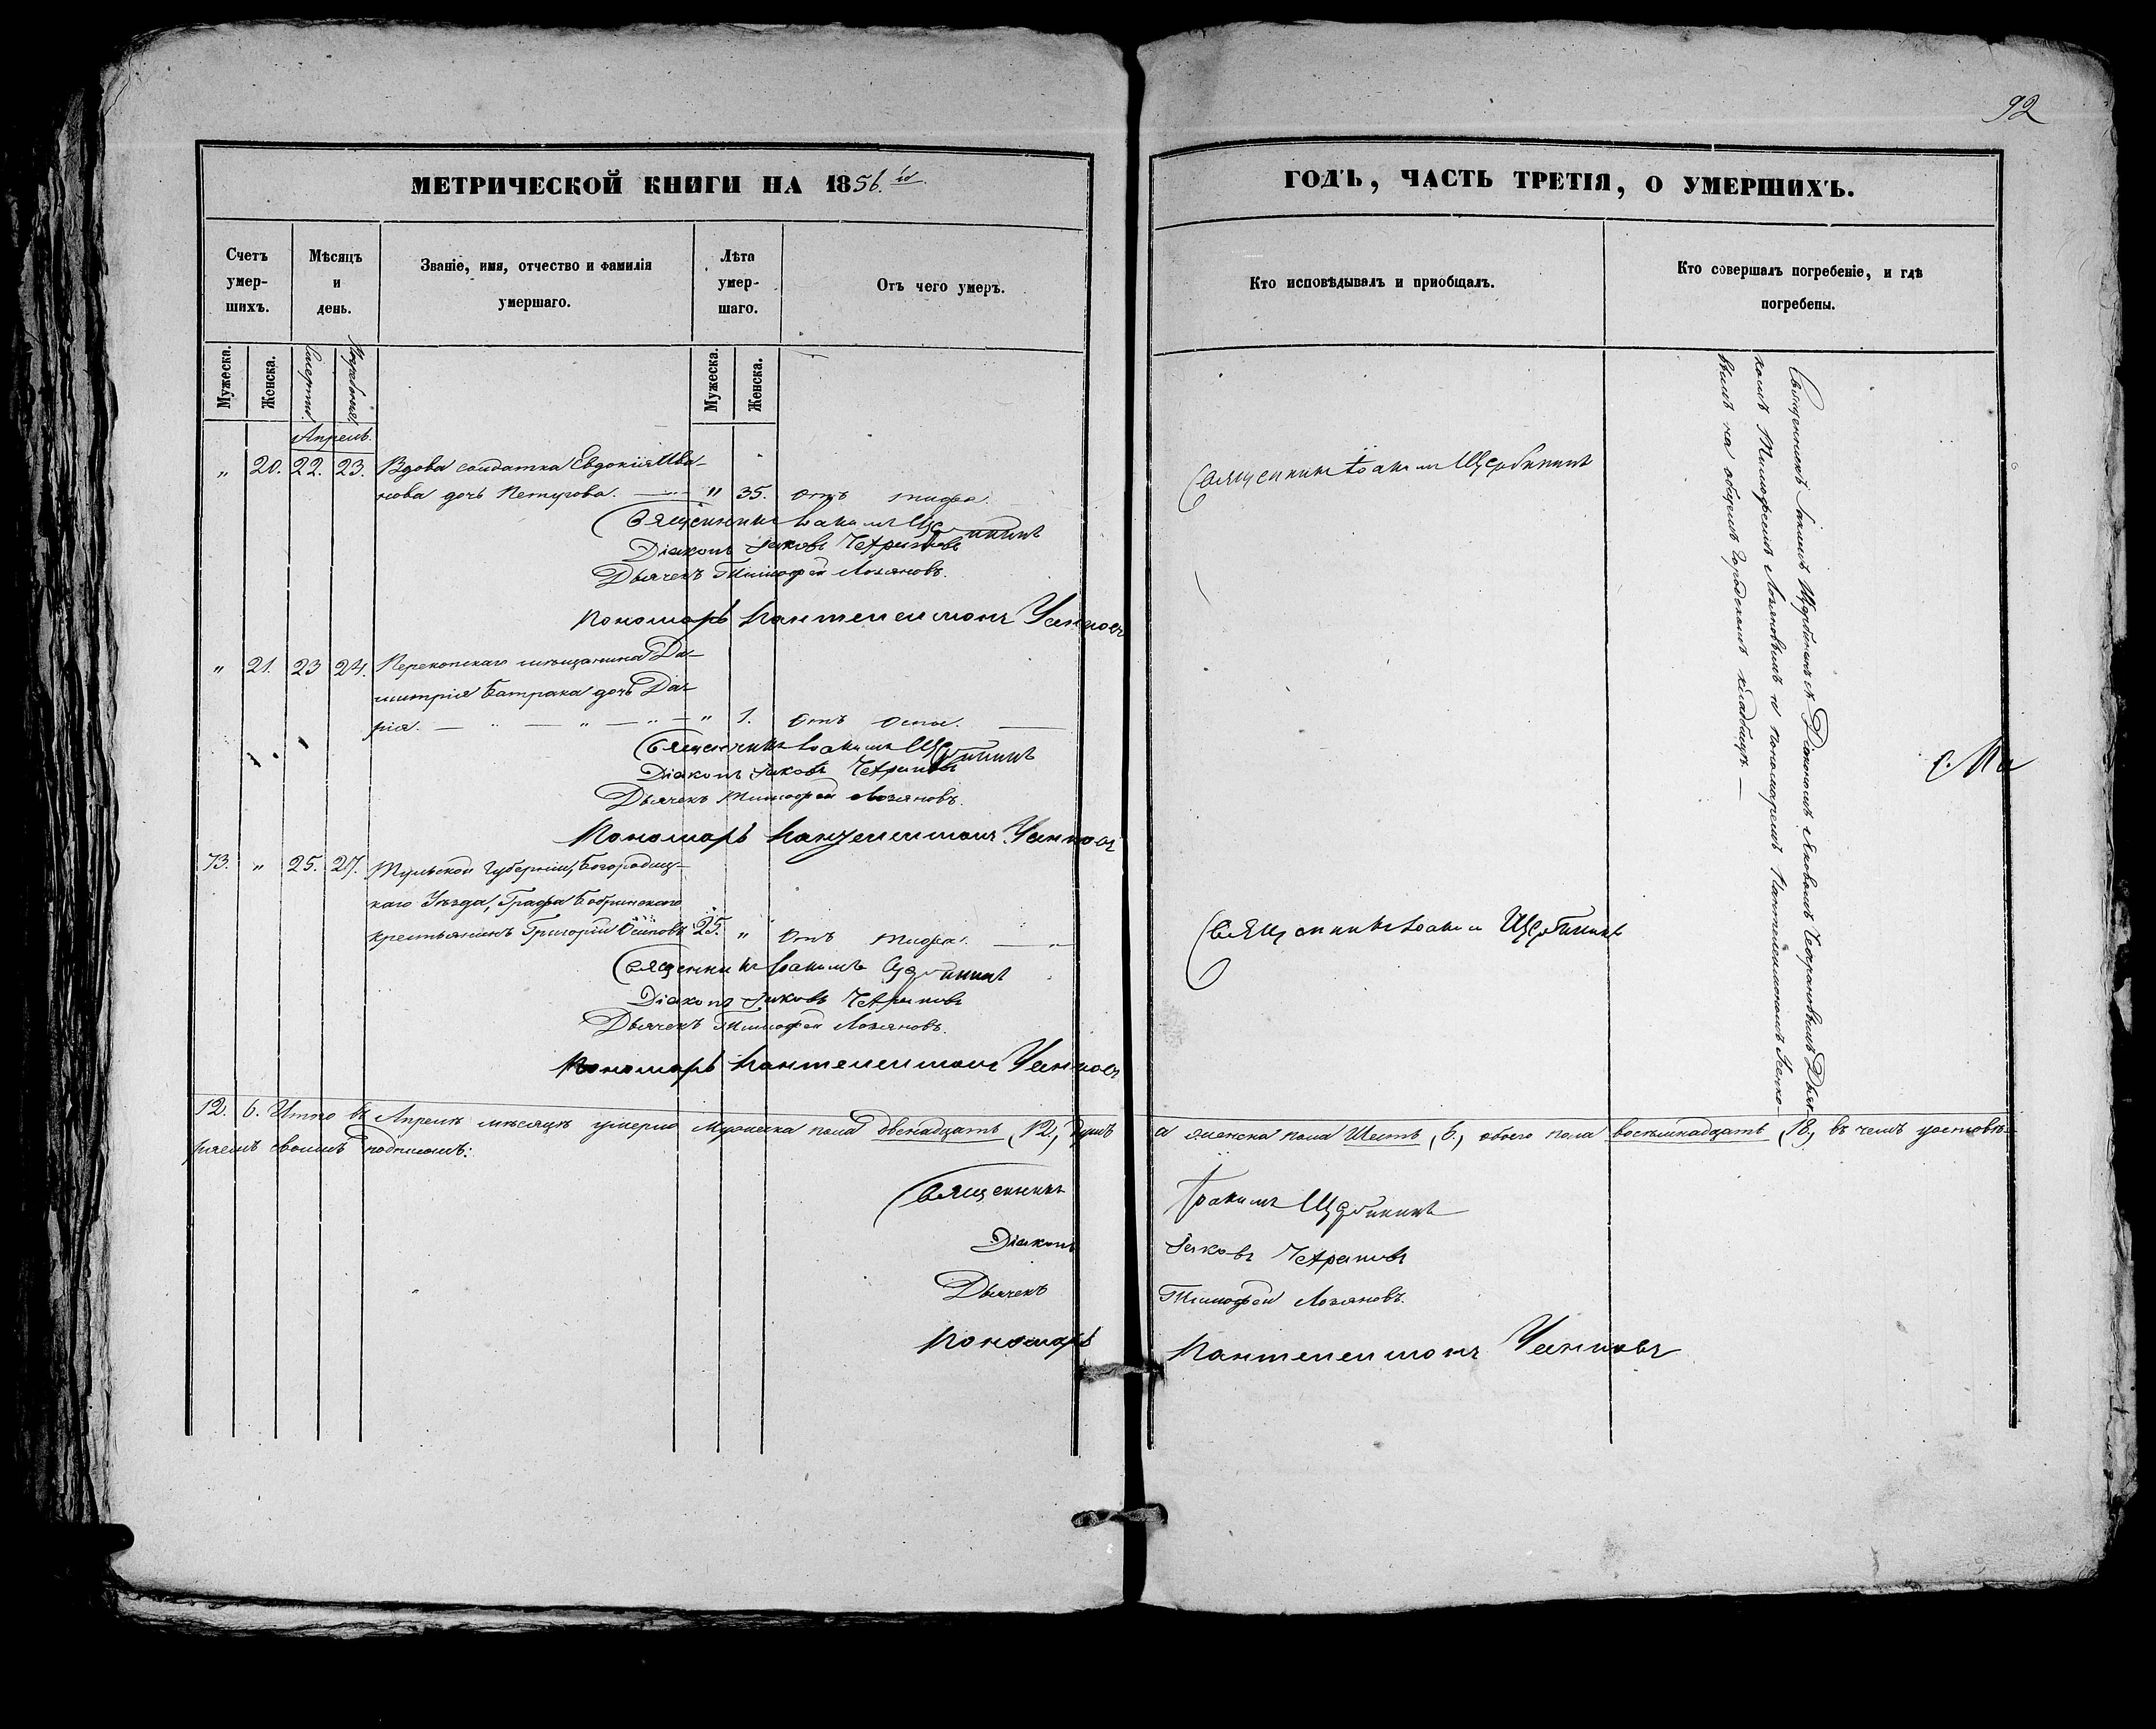 92
МЕТРИЧЕСКОЙ КНИГИ НА 1856.й
ГОДЪ, ЧАСТЬ ТРЕТІЯ, О УМЕРШИХЪ.
Счетъ умер-шихъ.
Мѣсяцъ и день.
Званіе, имя, отчество и фамилія умершаго.
Лѣта умер-шаго.
Отъ чего умеръ.
Кто исповѣдывалъ и пріобщалъ.
Кто совершалъ погребеніе, и гдѣ погребены.
Мужеска.
Женска.
Смерти.
Погребенія.
Мужеска.
Женска.
Апрель.
„ 20. 22. 23. Вдова солдатка Евдокія Ива-
нова дочь Петугова. — „ 35. Отъ тифа.
Священникъ Іоакимъ Щербининъ
Священникъ Іоакимъ Щербининъ
Діаконъ Іаковъ
Дьячекъ Тимофей Лозяновъ.
Пономарь Пантелеимонъ
„ 21. 23 24. Перекопскаго мѣщанина Ди-
митрія Батрака дочь Да-
рія. — „ — „ — „ — „ 1. Отъ Оспы. —
Священникъ Іоакимъ Щербининъ
Діаконъ Іаковъ
Дьячекъ Тимофей Лозяновъ.
Пономарь Пантелеимонъ
13. „ 25. 27. Тульской Губерніи, Богородиц-
каго Уѣзда, Графа Бобринскаго
крестьянинъ Григорій Осиповъ 25. „ Отъ тифа. — „
Священникъ Іоакимъ Щербининъ
Священникъ Іоакимъ Щербининъ
Діаконъ Іаковъ
Дьячекъ Тимофей Лозяновъ.
Пономарь Пантелеимонъ
Священникъ Іакимъ Щербининъ съ Діакономъ Яковомъ Дьяч-
комъ Тимофеемъ Лозяновымъ и пономаремъ Пантелеимономъ
вымъ на общемъ городскомъ кладбищѣ —
12. 6. Итого въ Апрелѣ мѣсяцѣ умерло Мужеска пола двенадцать (12) душъ
а женска пола Шесть (6.) обоего пола восемьнадцать (18.) въ чемъ удостовѣ-
ряемъ своимъ подписомъ:
Священникъ Іоакимъ Щербининъ
Діаконъ Іаковъ
Дьячекъ Тимофей Лозяновъ.
Пономарь Пантелеимонъ